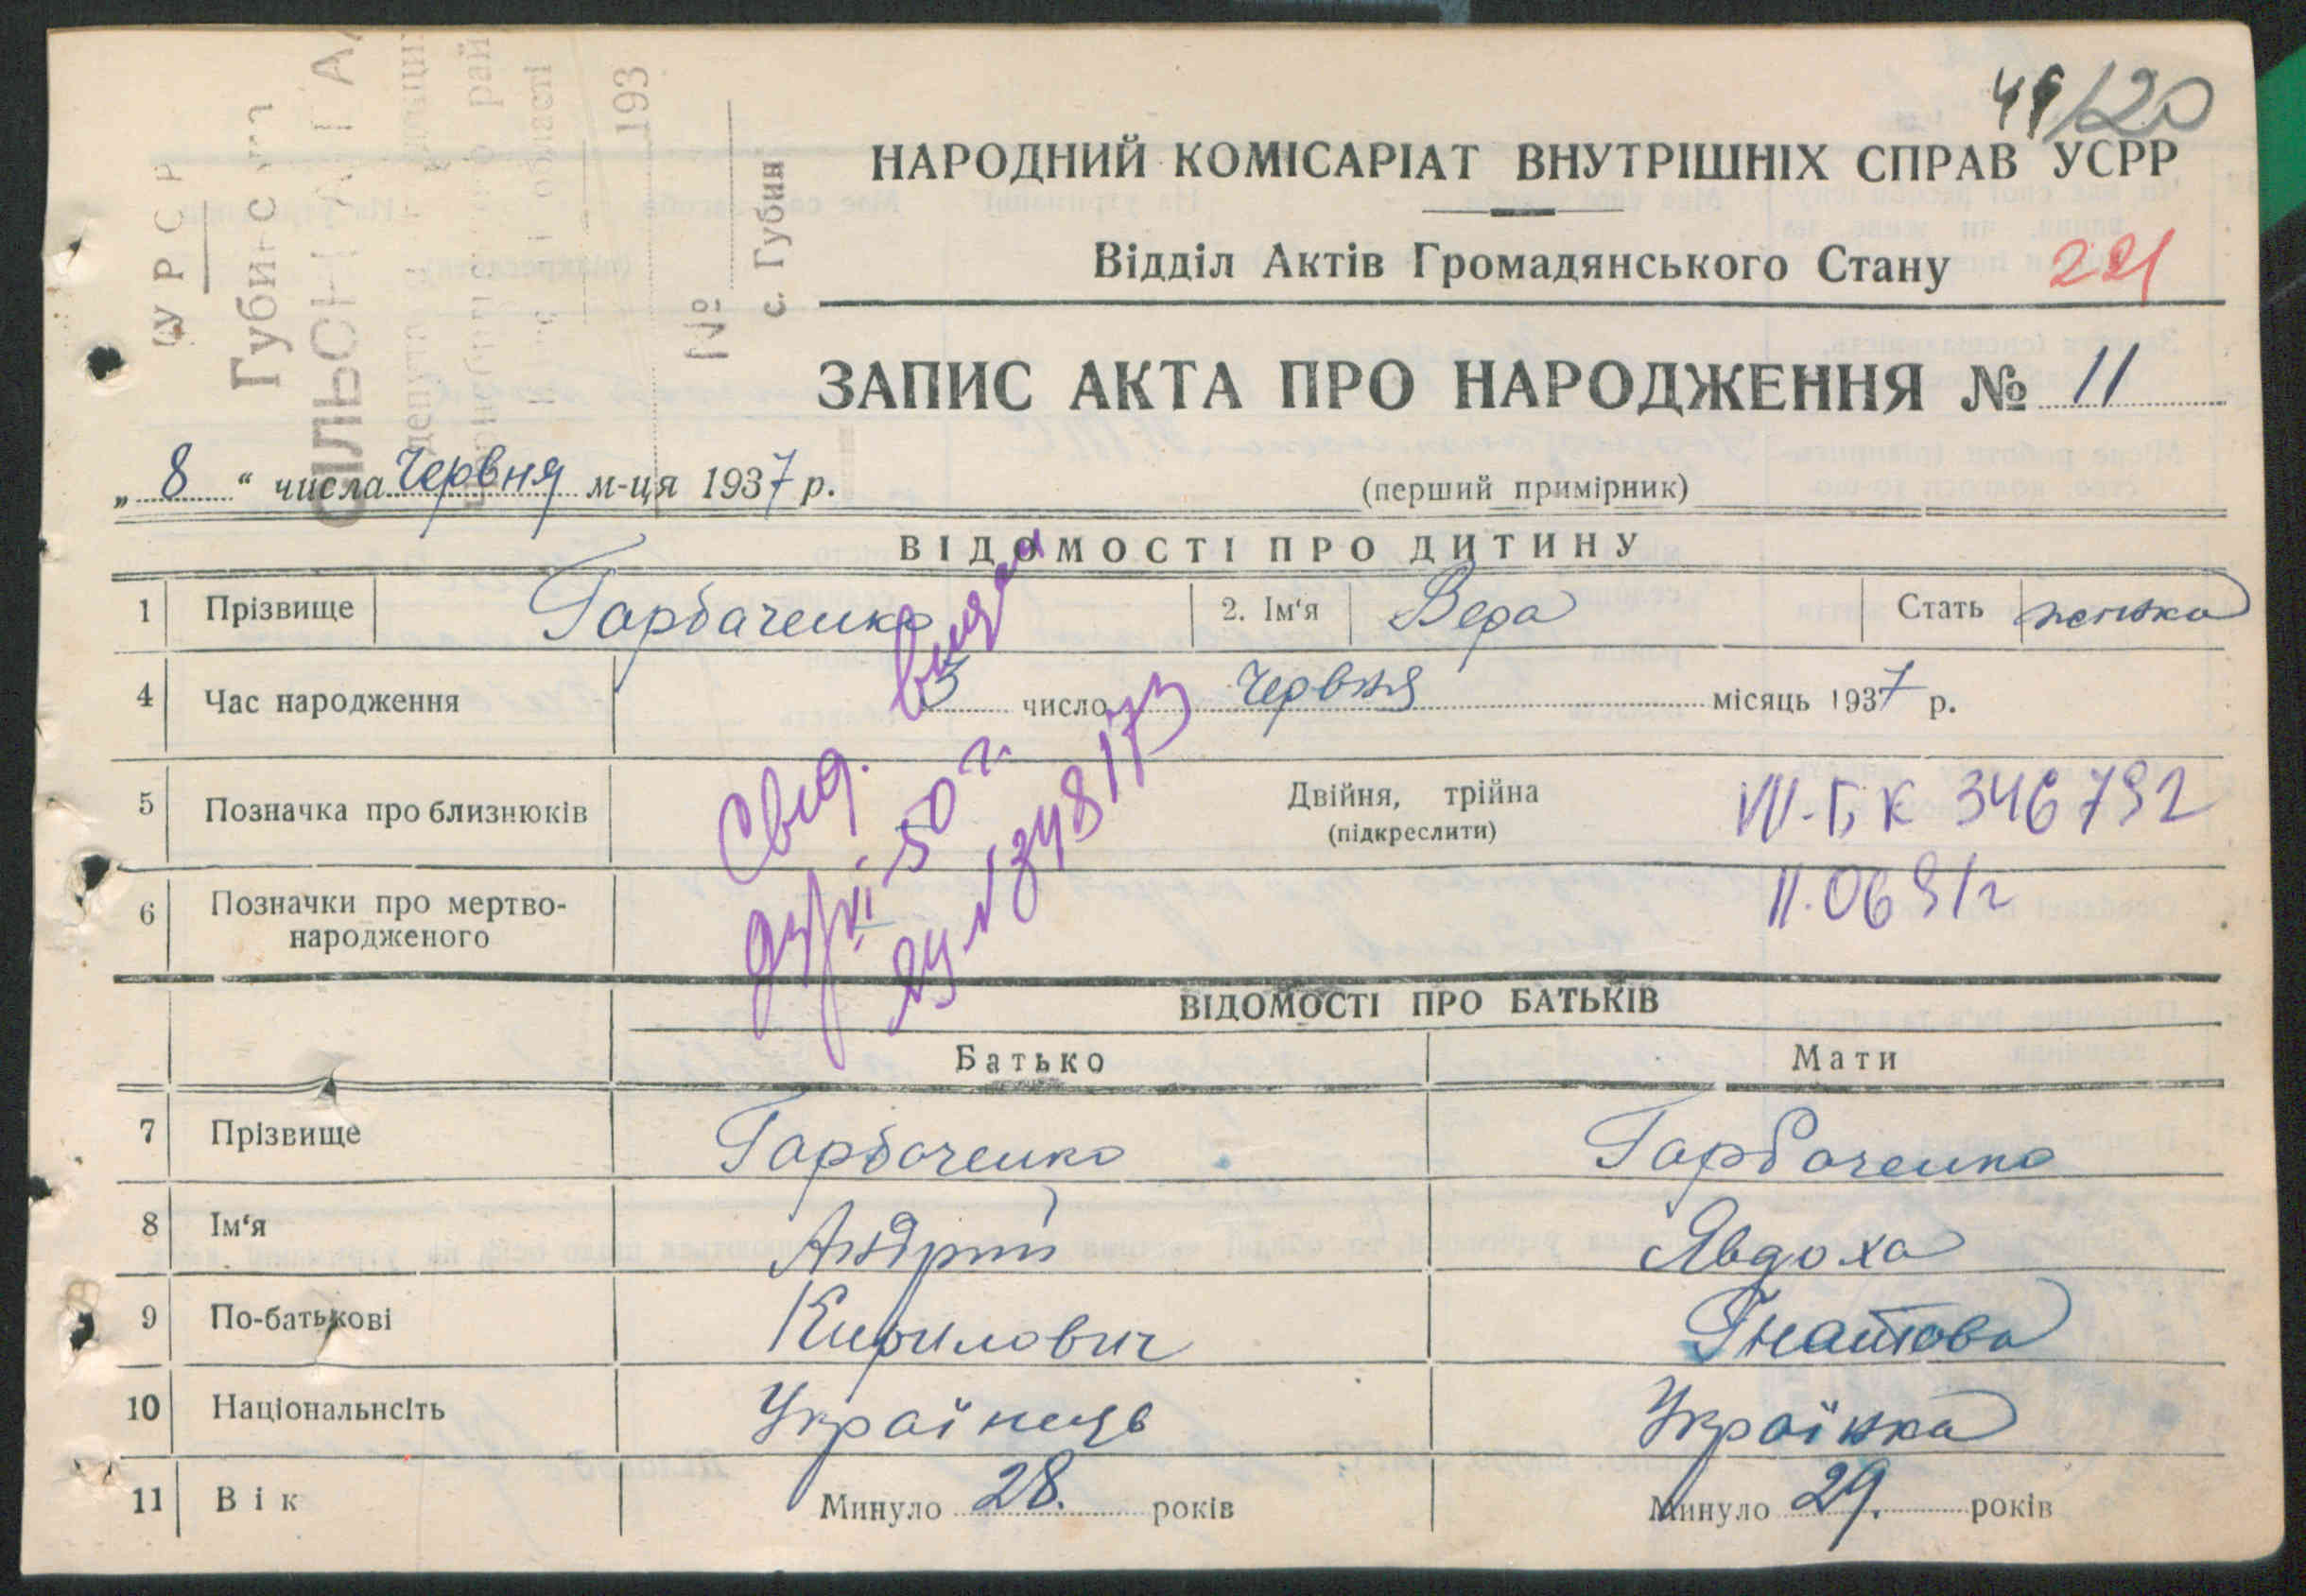 49/20
НАРОДНИЙ КОМІСАРІАТ ВНУТРІШНІХ СПРАВ УСРР
Відділ Актів Громадянського Стану 221
УРСР
Губинс
СІЛЬ
депу
рай
області
193
№
с. Губин
ЗАПИС АКТА ПРО НАРОДЖЕННЯ № 11
„ 8 “ числа Червня м-ця 1937 р. (перший примірник)
ВІДОМОСТІ ПРО ДИТИНУ
1 Прізвище Гарбаченко 2. Ім‘я Вера Стать женска
4 Час народження 3 число Червня місяць 1937 р.
5 Позначка про близнюків Двійня, трійна
(підкреслити)
III-БК 346792
6 Позначки про мертво-
народженого
11.06 91г
Свид.
50 г.
ВІДОМОСТІ ПРО БАТЬКІВ
Батько Мати
7 Прізвище Гарбаченко Гарбаченко
8 Ім‘я Андрій Явдоха
9 По-батькові Кирилович Гнатова
10 Національнсіть Українець Українка
11 Вік Минуло 28. років Минуло 29. років